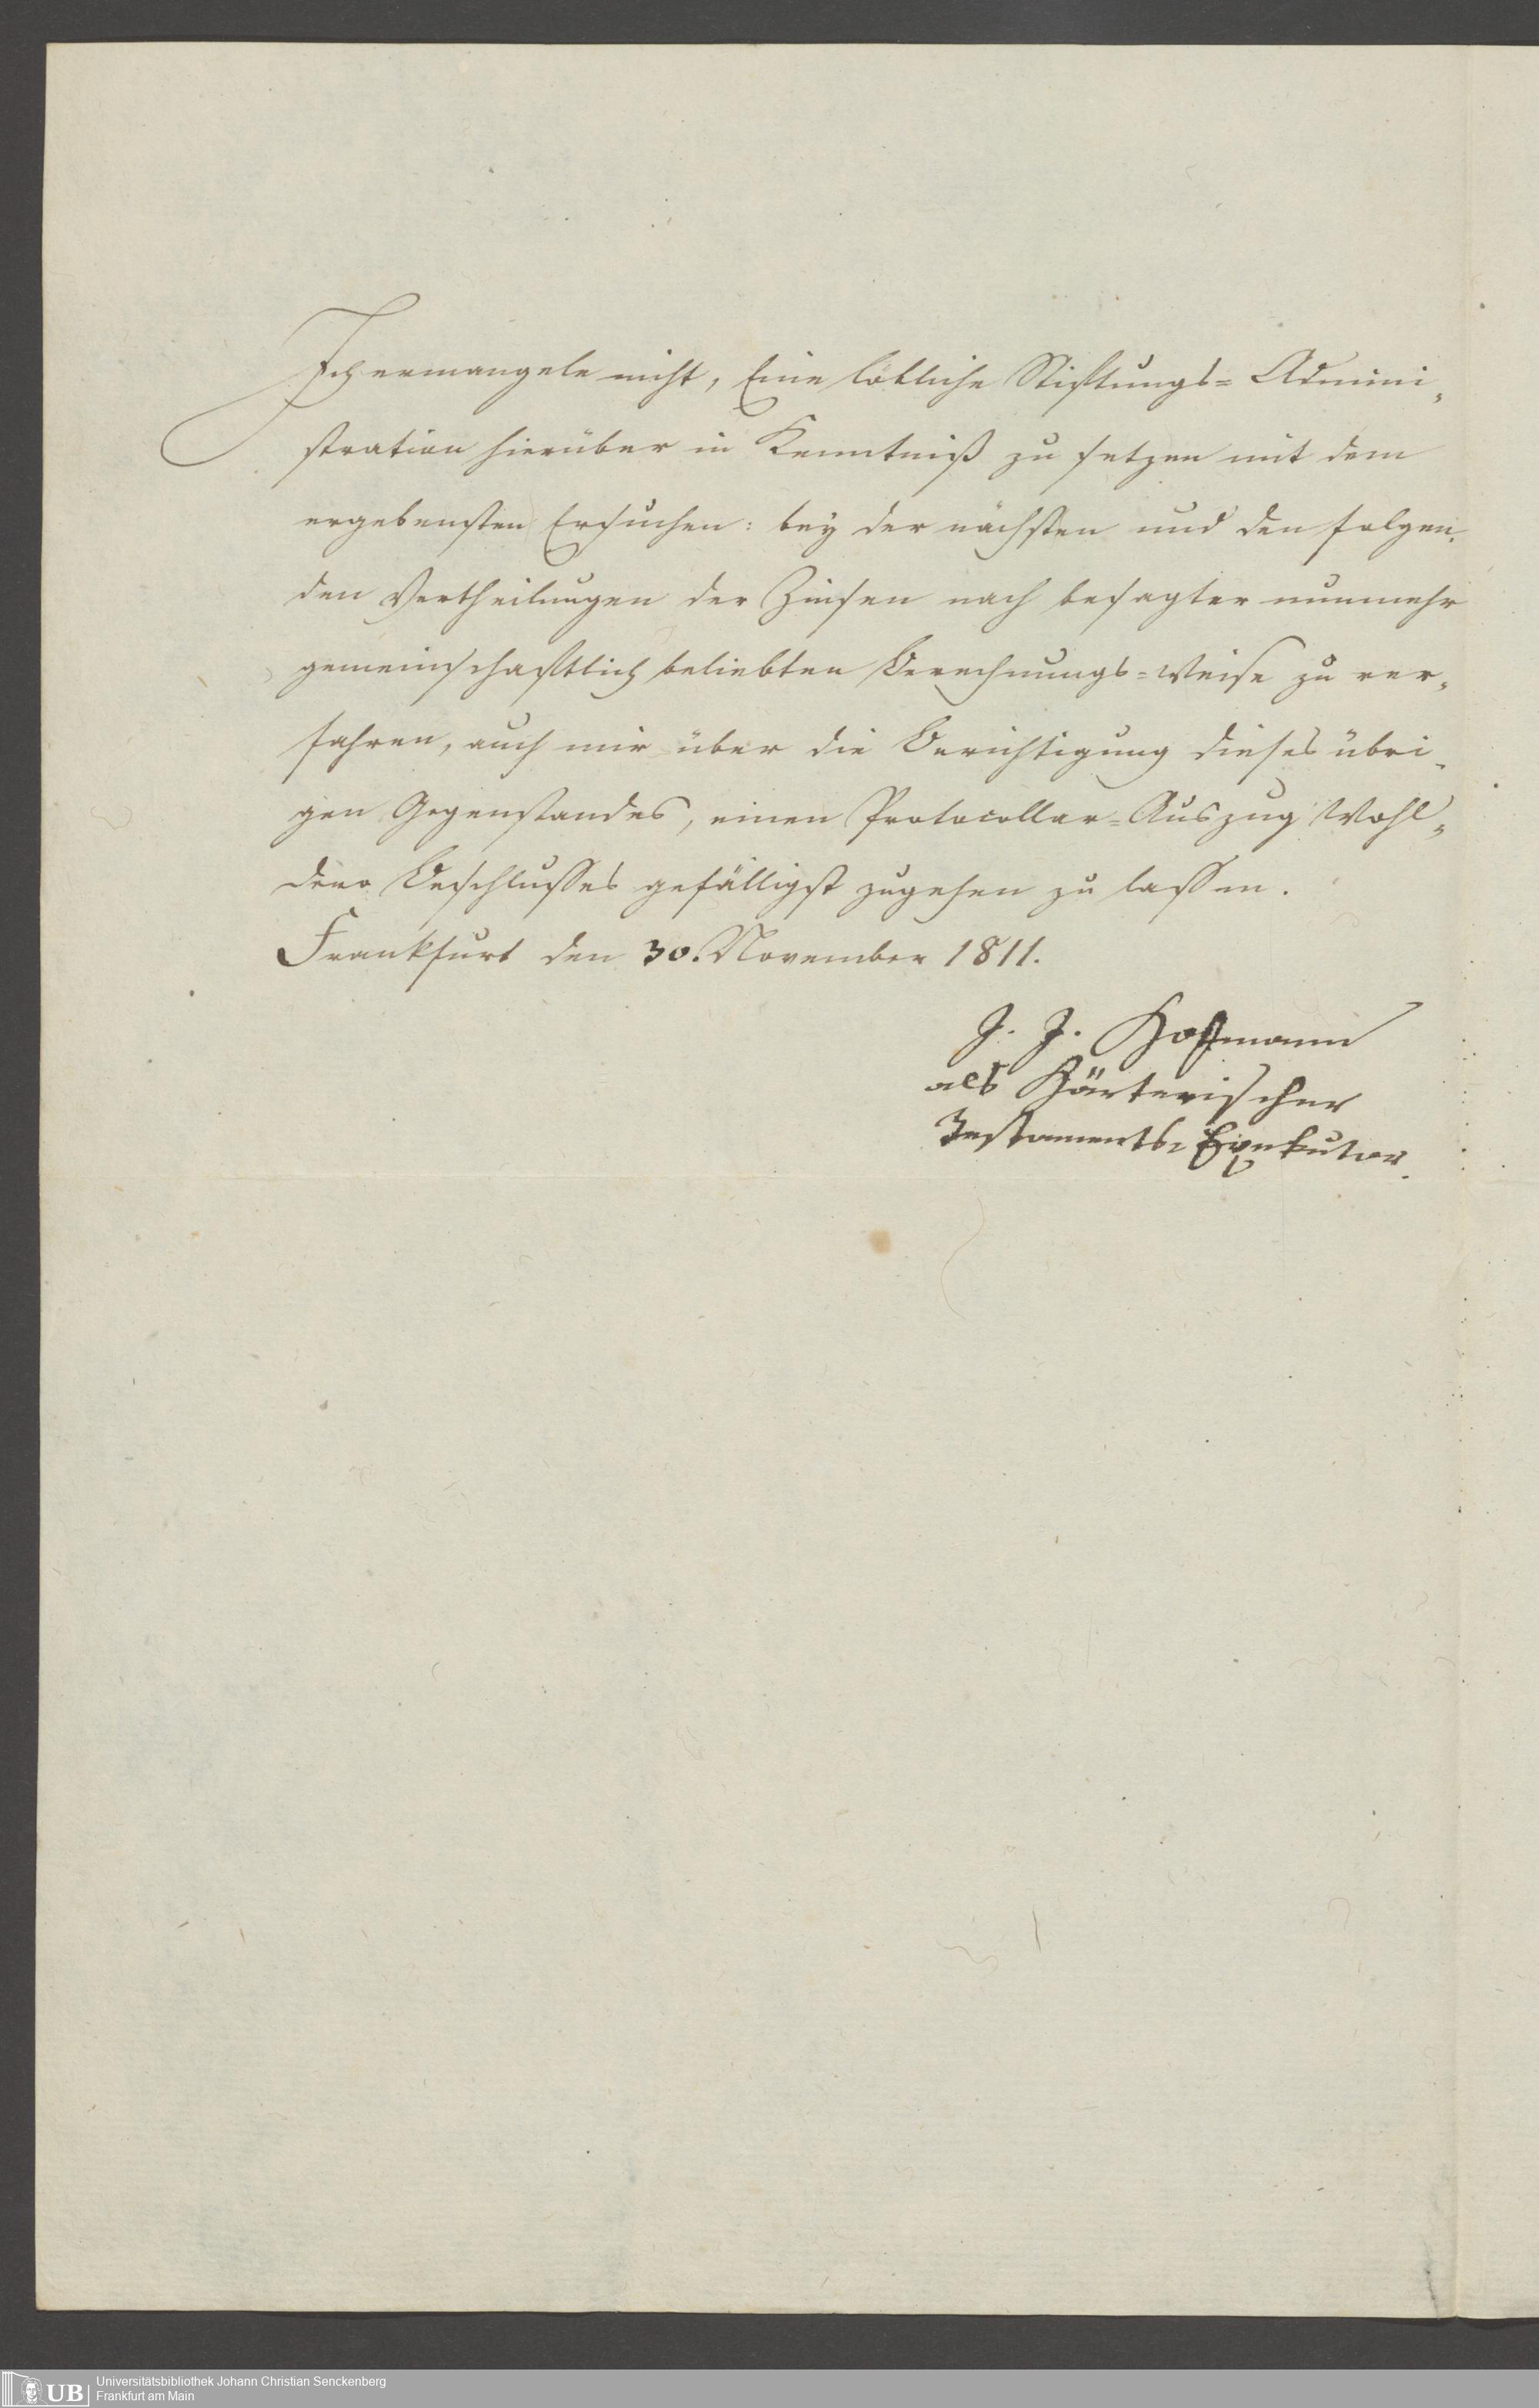 Ich ermangele nicht, Eine löbliche Stiftungs= Admini„
stration hierüber in Kenntniß zu setzen mit dem
ergebensten Ersuchen: bey der nächsten und den folgen„
den Vertheilungen der Zinsen nach besagter nunmehr
gemeinschaftlich beliebten Berechnungs=Weise zu ver„
fahren, auch mir über die Berichtigung dieses übri„
gen Gegenstandes, einen Protocollar=Auszug Wohl„
dero Beschlusses gefälligst zugehen zu lassen.
Frankfurt den 30. November 1811.
J. J. Hoffmann
als Härterischer
Testaments= Exekutor.
UB Universitätsbibliothek Johann Christian Senckenberg
Frankfurt am Main